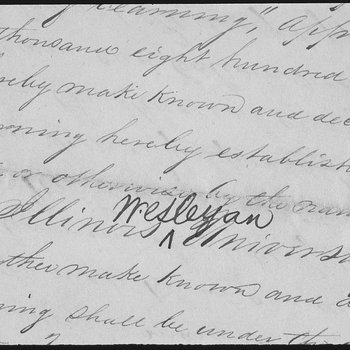 of Learning", appr
thousand eight hundred
reby make known and dec
rning hereby establish
or otherwise by the nam
Illinois ^ Wesleyan Univers
other make known and d
ning shall be under th